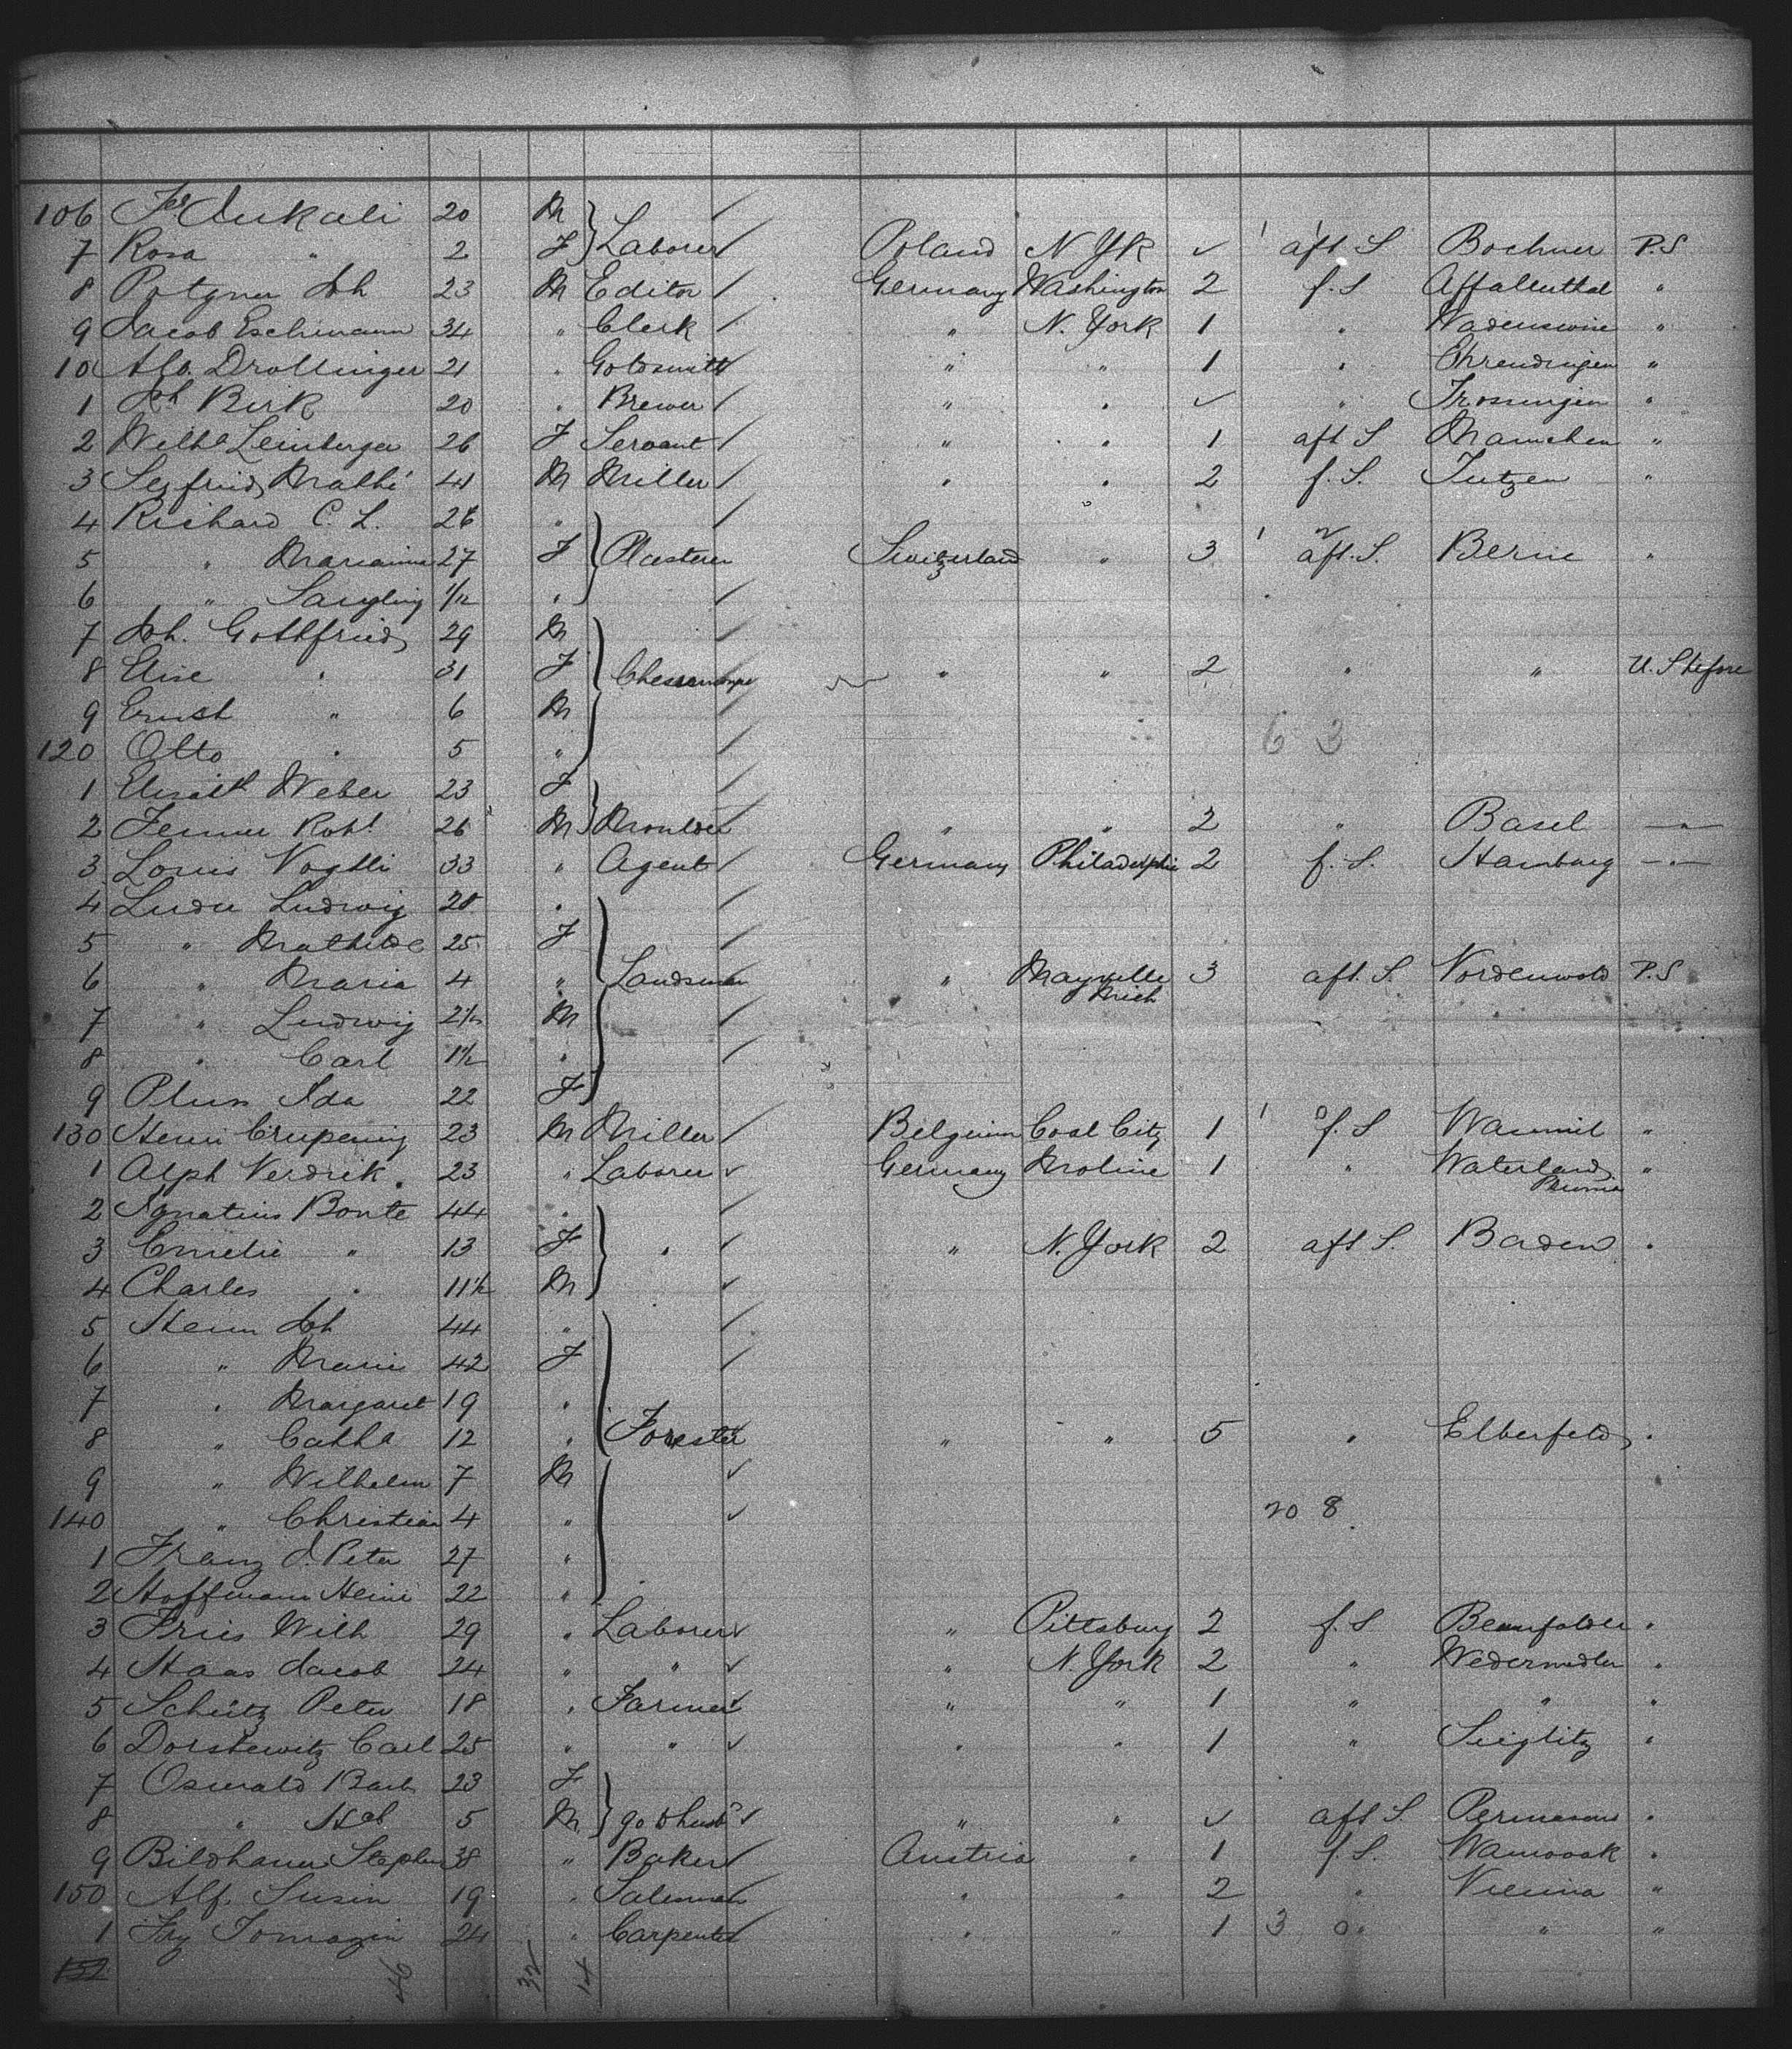 106 Jos Aukali 20 M
7 Rosa " 2 F Laborer Poland N Yk ✓ 1 aft S Bochner P.S
8 Potgner Joh 23 M Editor Germany Washington 2 f. S Affallerthal "
9 Jacob Eschmann 34 " Clerk " N. York 1 " "
10 Alo. Drollinger 21 " Goldsmith " " 1 " Ehrendingen "
1 Joh Birk 20 " Brewer " " ✓ " Trossingen "
2 Wilha Leinberger 26 F Servant " " 1 aft S "
3 Segfried Mathi 41 M Miller " " 2 f. S. Jutzen "
4 Richard C. L. 26 "
5 " Marianne 27 F Plasterer Switzerland " 3 1 aft. S. Berne "
6 " Saugling 1/12 "
7 Joh. Gottfried 29 M
8 Elise " 31 F " " 2 " "
9 Ernst " 6 M
120 Otto " 5 " 6 3
1 Elisath Weber 23 F
2 Robt 26 M Moulder " " 2 " Basel "
3 Louis Vogtli 33 " Agent Germany Philadelphia 2 f. S. Hamburg "
4 Ludwig 28 "
5 " Mathilde 25 F
6 " Maria 4 " Landsman " Mayville 3 aft. S. Nordenwold P.S
Mich
7 " Ludwig 2 1/2 M
8 " Carl 1 1/2 "
9 Ida 22 F
130 Henri 23 M Miller Belgium Coal City 1 1 0 f. S "
1 Alph Verdrek 23 " Laborer Germany Moline 1 " Waterland "
2 Ignatius Bonte 44 "
3 Emelie " 13 F " " N. York 2 aft S. Baden "
4 Charles " 11 1/2 M
5 Joh 44 "
6 " Marie 42 F
7 " Margaret 19 "
8 " Catha 12 " Forester " " 5 " Elberfeld "
9 " Wilhelm 7 M
140 " Christian 4 " 20 8
1 Franz J. Peter 27 "
2 Hoffmann Heinr 22 "
3 Fries Wilh 29 " Laborer " Pittsburg 2 f. S "
4 Haas Jacob 24 " " " N. York 2 " "
5 Schütz Peter 18 " Farmer " " 1 " " "
6 Dorstewitz Carl 25 " " " " 1 " Sieglitz "
7 Oswald Barb 23 F
8 " 5 M go to husbd " " ✓ aft S. "
9 Bildhauer Stephan 38 " Baker Austria " 1 f. S. "
150 Alf. Susin 19 " Salesman " " 2 " Vienna "
1 Tomazin 24 " Carpenter " " 1 3 0 " " "
152 46 32 14